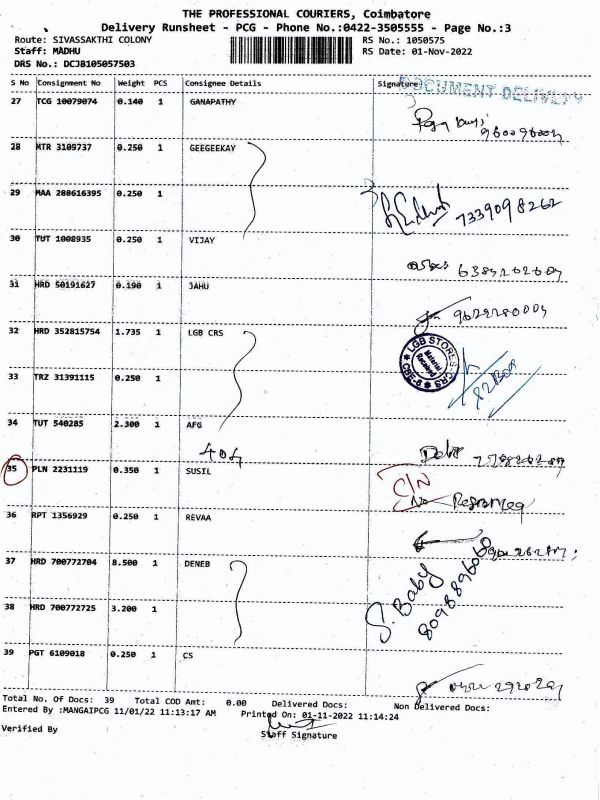 THE PROFESSIONAL COURIERS, Coimbatore
Delivery Runsheet - PCG - Phone No.:0422-3505555 - Page No.:3
Route: SIVASSAKTHI COLONY RS No.: 1050575
Staff: MADHU RS Date: 01-Nov-2022
DRS No.: DCJB105057503
S No Consignment No Weight PCS Consignee Details Signature
DOCUMENT DELIVERY
27 TCG 10079074 0.140 1 GANAPATHY
28 MTR 3109737 0.250 1 GEEGEEKAY
29 MAA 288616395 0.250 1
7339098262
30 TUT 1008935 0.250 1 VIJAY
31 HRD 50191627 0.190 1 JAHU
32 HRD 352815754 1.735 1 LGB CRS
LGB STORES-CRS
CBE-6
Material Received
33 TRZ 31391115 0.250 1
34 TUT 540285 2.300 1 AFG
404
35 PLN 2231119 0.350 1 SUSIL
C/N
No
36 RPT 1356929 0.250 1 REVAA
37 HRD 700772704 8.500 1 DENEB
S. Baby
38 HRD 700772725 3.200 1
39 PGT 6109018 0.250 1 CS
Total No. Of Docs: 39 Total COD Amt: 0.00 Delivered Docs: Non Delivered Docs:
Entered By :MANGAIPCG 11/01/22 11:13:17 AM Printed On: 01-11-2022 11:14:24
Verified By Staff Signature